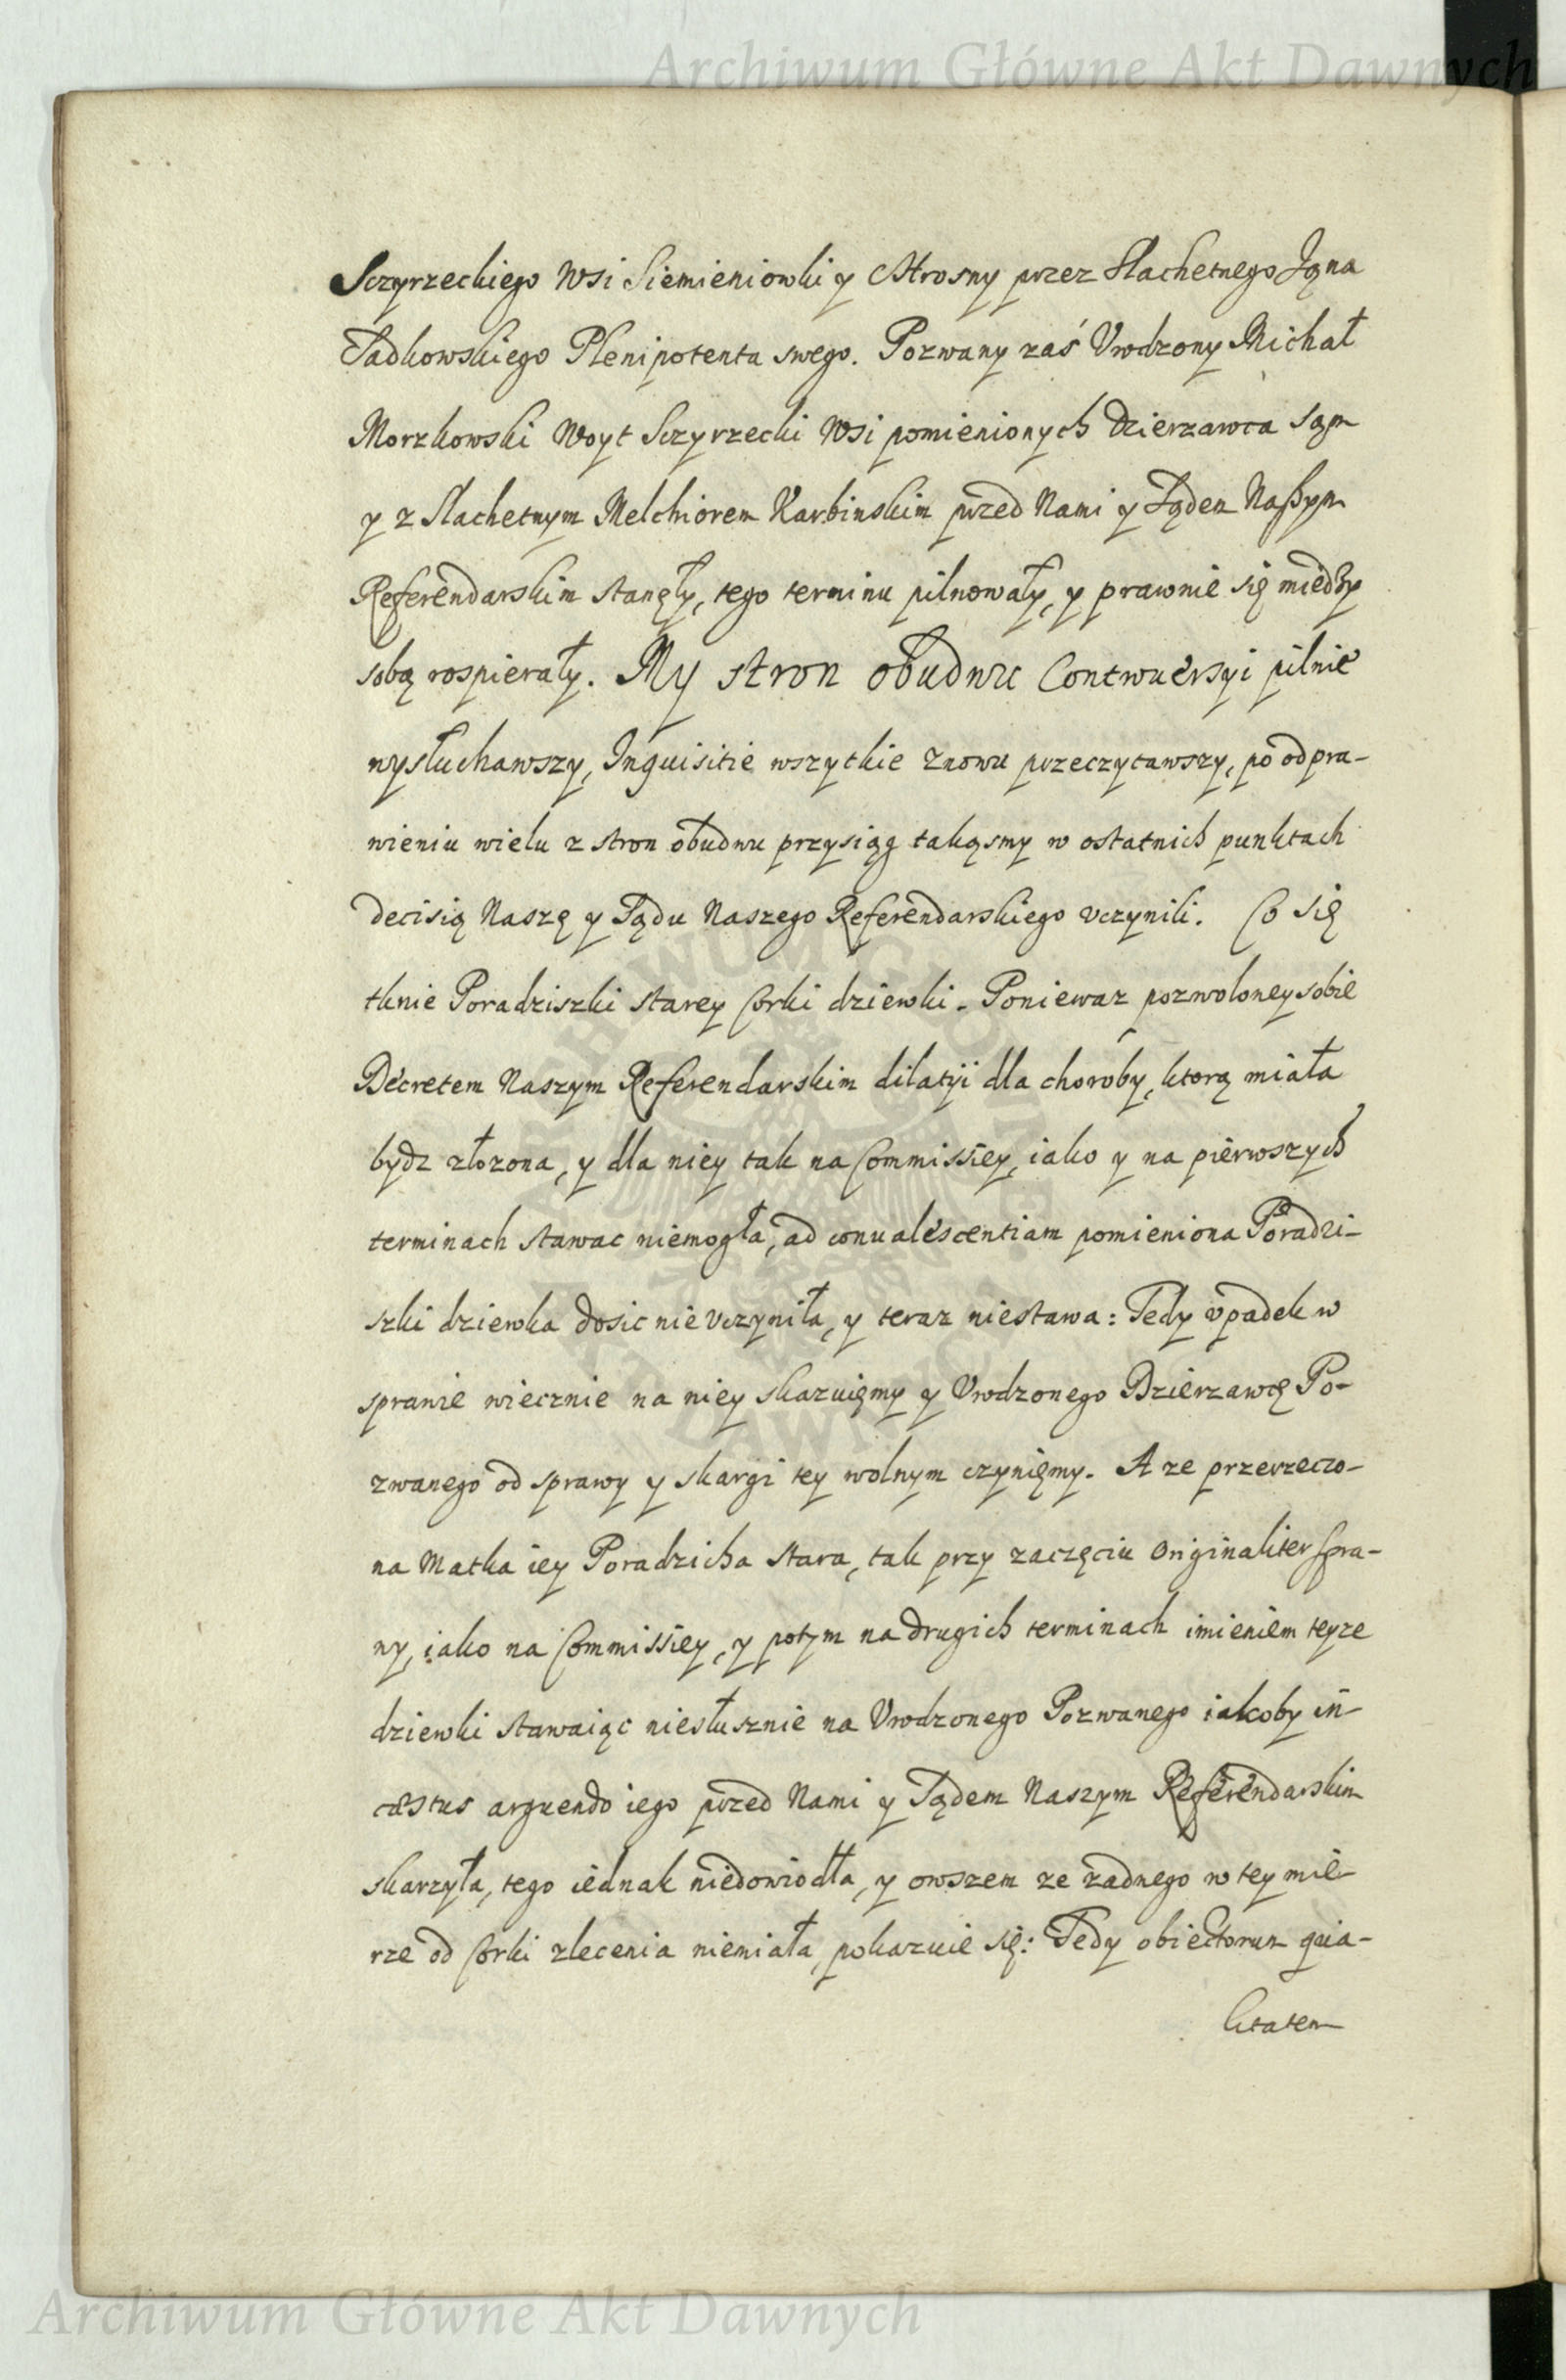 Archiwum Główne Akt Dawnych
Sczyrzeckiego Wsi Siemieniowki y Chrosny przez Slachetnego Jąna
Sadkowskiego Plenipotenta swego. Pozwany zaś Vrodzony Michał
Morzkowski Woyt Sczyrzecki Wsi pomienionych Dzierzawca sąm
y z Slachetnym Melchiorem Karbinskim przed Nami y Sądem Naszym
Referendarskim stanęły, tego terminu pilnowały, y prawnie się miedzy
sobą rospierały. My stron obudwu Controuersyi pilnie
wysłuchawszy, Inquisitie wszytkie znowu przeczytawszy, po odpra-
wieniu wielu z stron obudwu przysiąg takąsmy w ostatnich punktach
decisią Naszę y Sądu Naszego Referendarskiego vczynili. Co się
tknie Poradziszki starey Corki dziewki. Poniewaz pozwoloney sobie
Decretem Naszym Referendarskim dilatyi dla choroby, ktorą miała
bydz złozona, y dla niey tak na Commissiey, iako y na pierwszych
terminach stawac niemogła, ad conualescentiam pomieniona Poradzi-
szki dziewka dosic nie vczyniła, y teraz niestawa: Tedy vpadek w
sprawie wiecznie na niey skazuięmy y Vrodzonego Dzierzawcę Po-
zwanego od sprawy y skargi tey wolnym czynięmy. A ze przerzeczo-
na Matka iey Poradzicha stara, tak przy zaczęciu Originaliter spra-
wy, iako na Commissiey, y potym na drugich terminach imieniem teyze
dziewki stawaiąc niesłusznie na Vrodzonego Pozwanego iakoby in-
cæstus arguendo iego przed Nami y Sądem Naszym Referendarskim
skarzyła, tego iednak niedowiodła, y owszem ze zadnego w tey mie-
rze od Corki zlecenia niemiała, pokazuie się: Tedy obiectorum qua-
litatem
Archiwum Główne Akt Dawnych